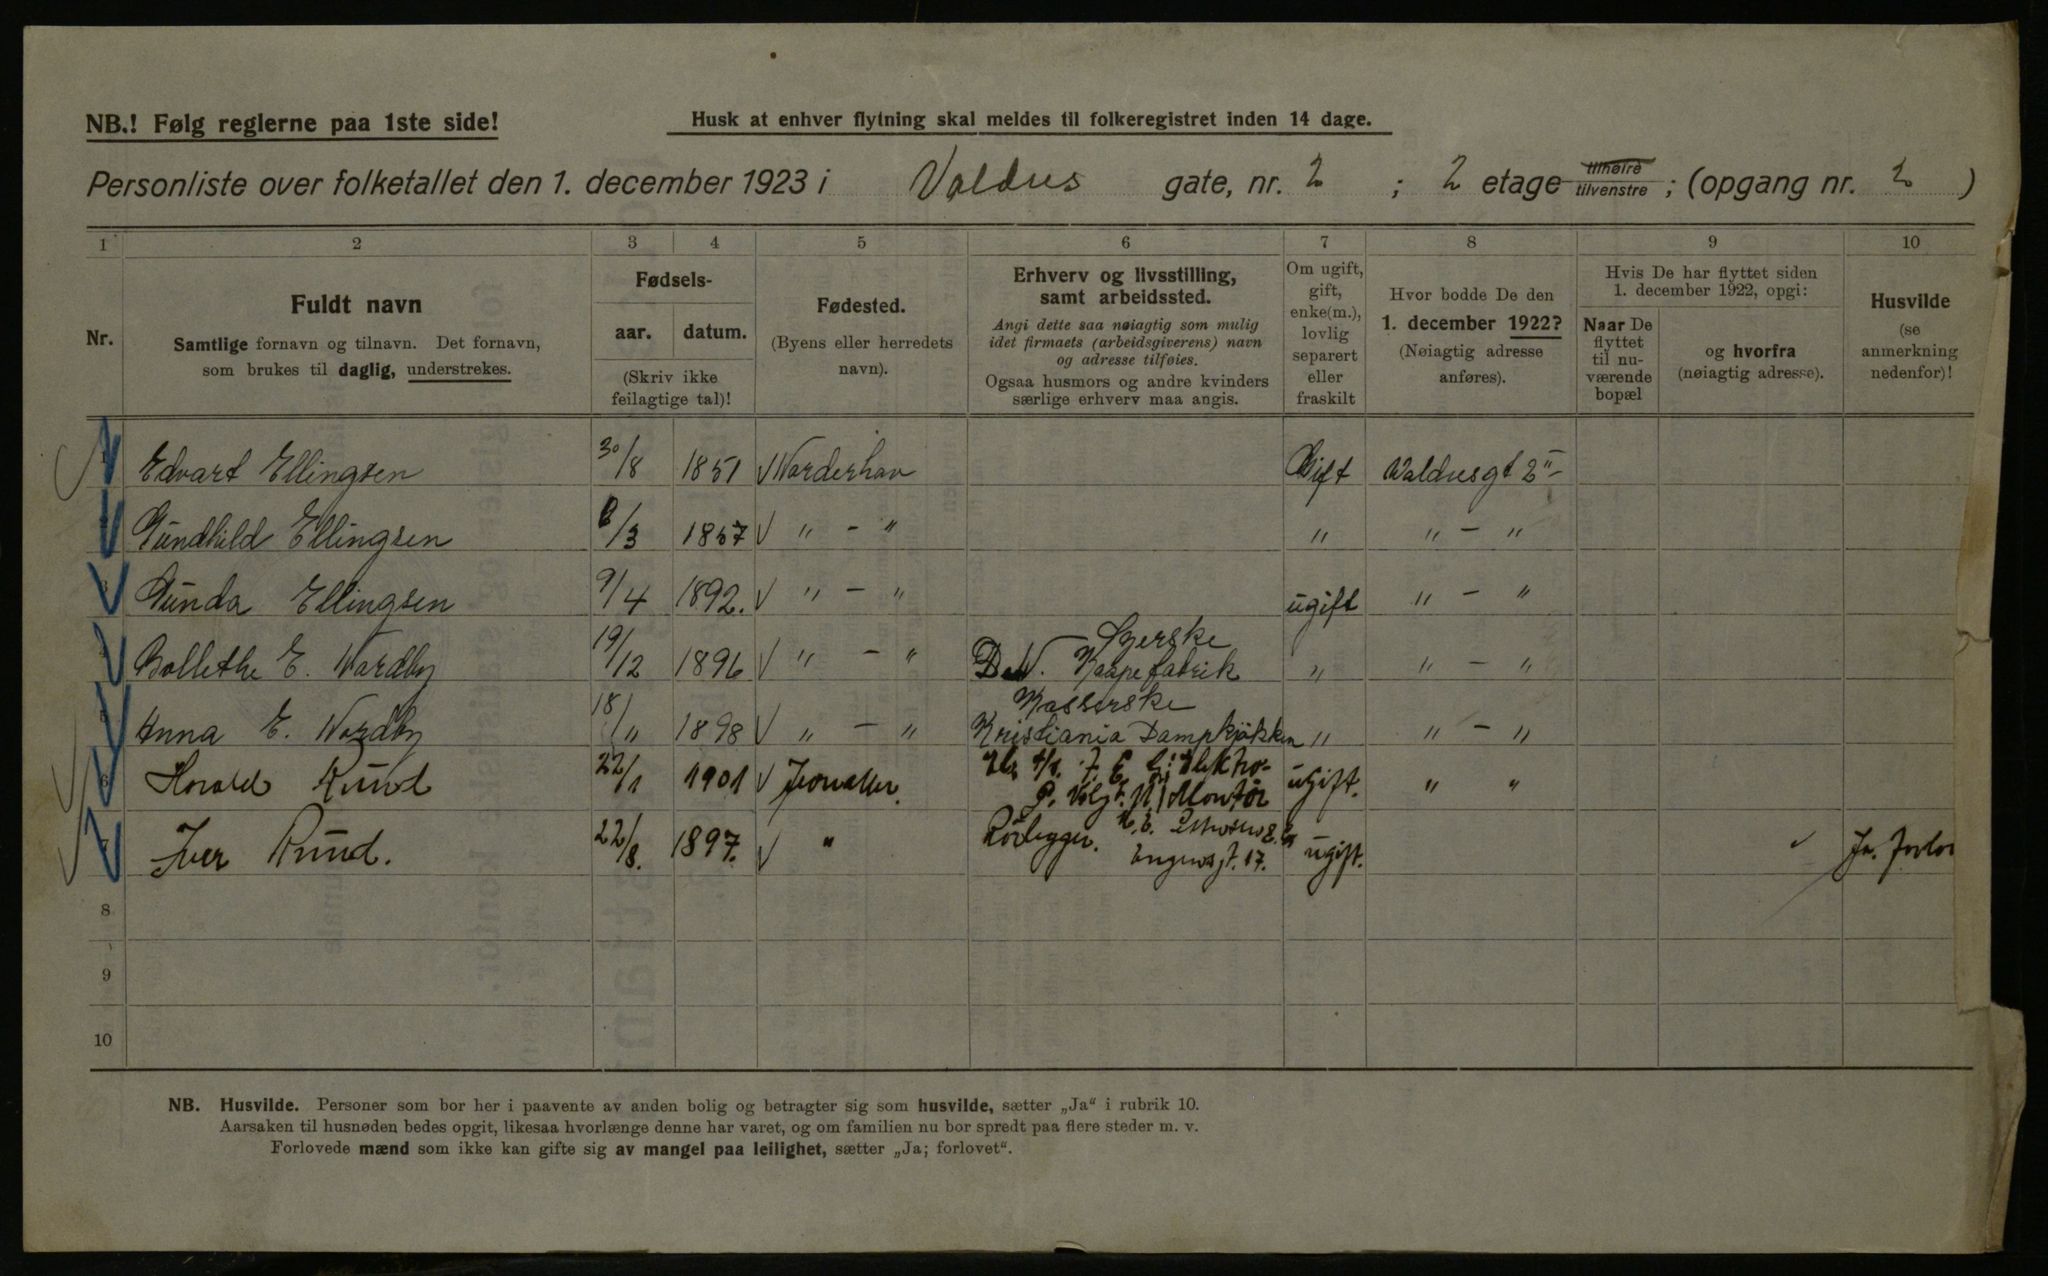 NB.! Følg reglerne paa 1ste side!
Husk at enhver flytning skal meldes til folkeregistret inden 14 dage.
Personliste over folketallet den 1. december 1923 i Valdres gate, nr. 2 ; 2 etage tilhøire tilvenstre ; (opgang nr. 2 )
1 2 3 4 5 6 7 8 9 10
Nr.
Fuldt navn
Samtlige fornavn og tilnavn. Det fornavn,
som brukes til daglig, understrekes.
Fødsels-
aar. datum.
(Skriv ikke
feilagtige tal)!
Fødested.
(Byens eller herredets
navn).
Erhverv og livsstilling,
samt arbeidssted.
Angi dette saa nøiagtig som mulig
idet firmaets (arbeidsgiverens) navn
og adresse tilføies.
Ogsaa husmors og andre kvinders
særlige erhverv maa angis.
Om ugift,
gift,
enke(m.),
lovlig
separert
eller
fraskilt
Hvor bodde De den
1. december 1922?
(Nøiagtig adresse
anføres).
Hvis De har flyttet siden
1. december 1922, opgi:
Naar De
flyttet
til nu-
værende
bopæl
og hvorfra
(nøiagtig adresse).
Husvilde
(se
anmerkning
nedenfor)!
Edvart Ellingsen 30/8 1851 Norderhov Gift Valdresgt 2 II
Gundhild Ellingsen 6/3 1857 " - " " " - "
Gunda Ellingsen 9/4 1892. " - " ugift " - "
Bollethe E. Nordby 19/12 1896 " - " Syerske
D. N. Kaapefabrik " " - "
Anna E. Nordby 18/" 1898 " - " Kasserske
Kristiania Dampkjøkken " " - "
Harald Ruud 22/1 1901 Jevnaker. Elektro-
Montør ugift. " "
Iver Ruud. 22/8. 1897. " Rørlegger.
17. ugift. Ja. forlo
8
9
10
NB. Husvilde. Personer som bor her i paavente av anden bolig og betragter sig som husvilde, sætter „Ja“ i rubrik 10.
Aarsaken til husnøden bedes opgit, likesaa hvorlænge denne har varet, og om familien nu bor spredt paa flere steder m. v.
Forlovede mænd som ikke kan gifte sig av mangel paa leilighet, sætter „Ja; forlovet“.